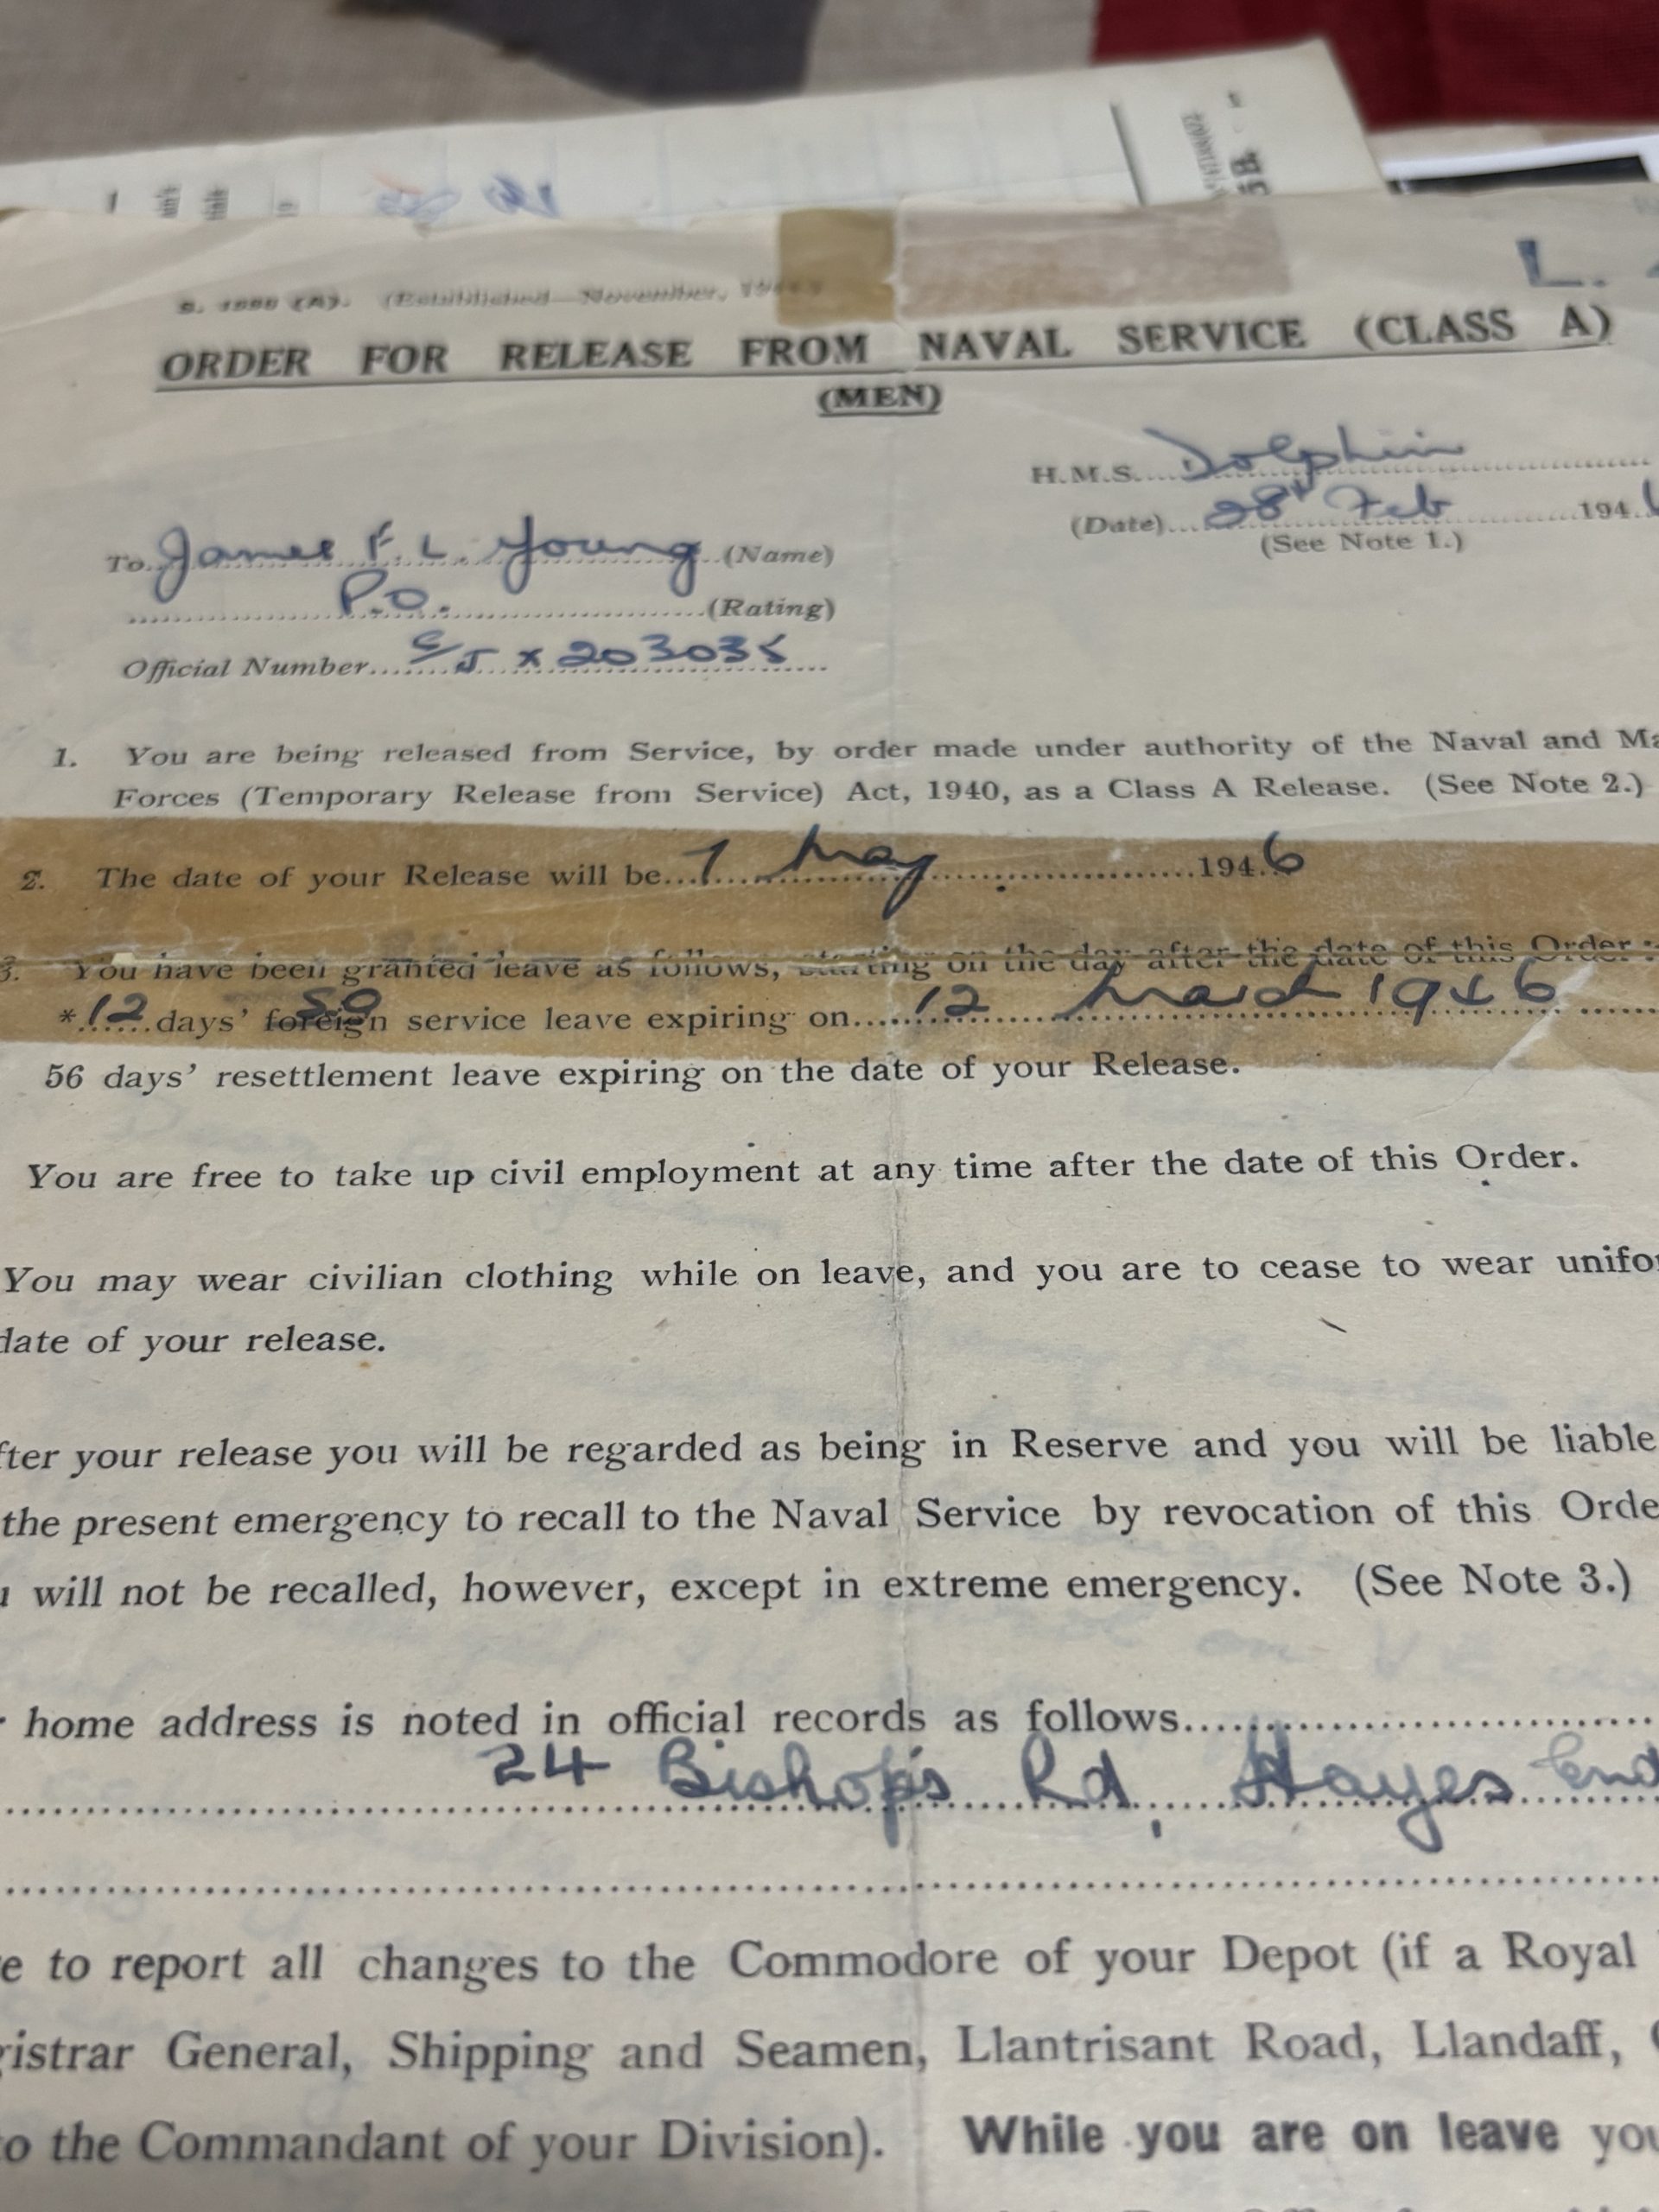 L.
S. 1000 (A). (Established—November, 194
ORDER FOR RELEASE FROM NAVAL SERVICE (CLASS A)
(MEN)
H.M.S. Dolphin
(Date) 28th Feb 194
(See Note 1.)
To James F. L. Young (Name)
P.O. (Rating)
Official Number C/J x 203035
1. You are being released from Service, by order made under authority of the Naval and Ma
Forces (Temporary Release from Service) Act, 1940, as a Class A Release. (See Note 2.)
2. The date of your Release will be 7 May 1946
3. You have been granted leave as follows, starting on the day after the date of this Order:
*12 days' foreign service leave expiring on 12 March 1946
56 days' resettlement leave expiring on the date of your Release.
You are free to take up civil employment at any time after the date of this Order.
You may wear civilian clothing while on leave, and you are to cease to wear unifo
date of your release.
fter your release you will be regarded as being in Reserve and you will be liable
the present emergency to recall to the Naval Service by revocation of this Orde
u will not be recalled, however, except in extreme emergency. (See Note 3.)
r home address is noted in official records as follows
24 Bishops Rd, Hayes End
e to report all changes to the Commodore of your Depot (if a Royal
gistrar General, Shipping and Seamen, Llantrisant Road, Llandaff, C
o the Commandant of your Division). While you are on leave you